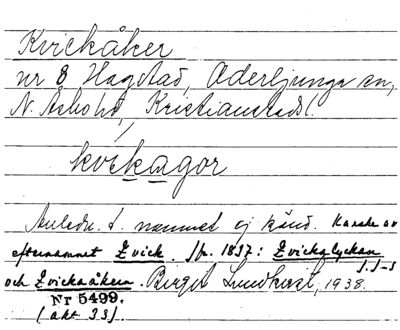 Kvickåker
nr 8 Hagstad, Oderljunga sn,
N. Åsbohd, Kristianstads l.
kvikagor
Anledn. t. namnet ej känd. Kanske av
efternamnet Qvick. Jfr. 1837: Qvickalyckan
och Qvickaåkern. Birgit Lundkvist, 1938.
Nr 5499.
(akt 33)